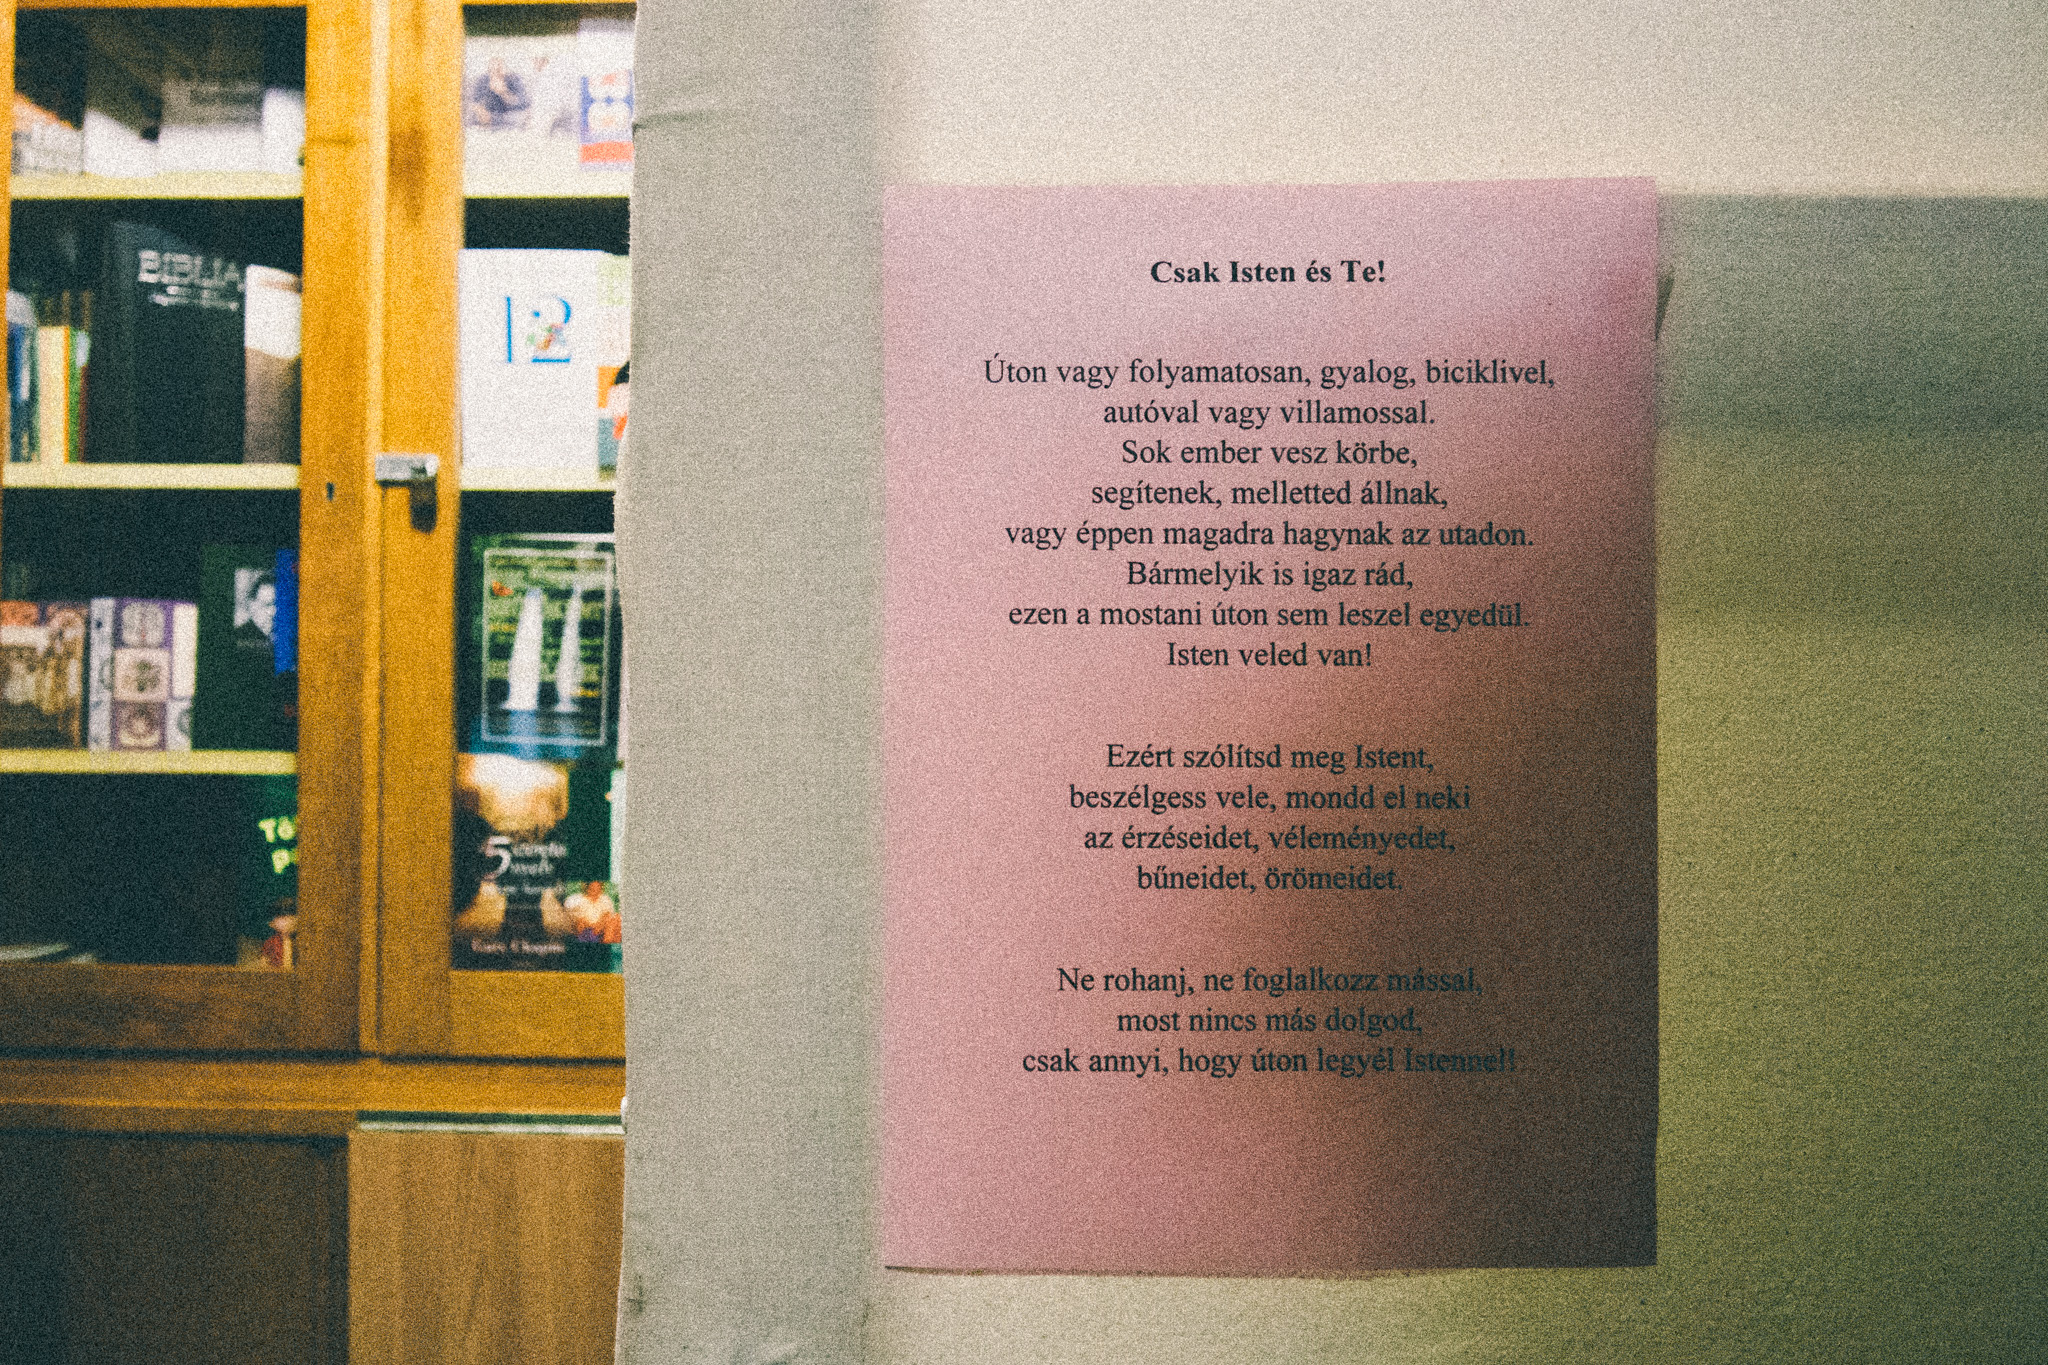 BIBLIA
12
Té
5 szeretet
nyelv
Gary Chapman
Csak Isten és Te!
Úton vagy folyamatosan, gyalog, biciklivel,
autóval vagy villamossal.
Sok ember vesz körbe,
segítenek, melletted állnak,
vagy éppen magadra hagynak az utadon.
Bármelyik is igaz rád,
ezen a mostani úton sem leszel egyedül.
Isten veled van!
Ezért szólítsd meg Istent,
beszélgess vele, mondd el neki
az érzéseidet, véleményedet,
bűneidet, örömeidet.
Ne rohanj, ne foglalkozz mással,
most nincs más dolgod,
csak annyi, hogy úton legyél Istennel!